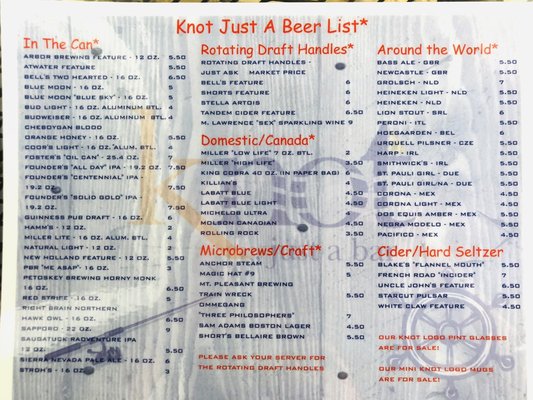 Knot Just A Beer List*
In The Can*
ARBOR BREWING FEATURE - 12 OZ. 5.50
ATWATER FEATURE 5.50
BELL'S TWO HEARTED - 16 OZ. 6.50
BLUE MOON - 16 OZ. 5
BLUE MOON "BLUE SKY" - 16 OZ. 5
BUD LIGHT - 16 OZ. ALUMINUM BTL. 4
BUDWEISER - 16 OZ. ALUMINUM BTL. 4
CHEBOYGAN BLOOD
ORANGE HONEY - 16 OZ. 5.50
COOR'S LIGHT - 16 OZ. "ALUM. BTL. 4
FOSTER'S "OIL CAN" - 25.4 OZ. 7
FOUNDER'S "ALL DAY" IPA - 19.2 OZ. 7.50
FOUNDER'S "CENTENNIAL" IPA -
19.2 OZ. 7.50
FOUNDER'S "SOLID GOLD" IPA -
19.2 OZ. 7.50
GUINNESS PUB DRAFT - 16 OZ. 6
HAMM'S - 12 OZ. 2
MILLER LITE - 16 OZ. ALUM. BTL. 4
NATURAL LIGHT - 12 OZ. 2
NEW HOLLAND FEATURE - 12 OZ. 5.50
PBR "ME ASAP" - 16 OZ. 3
PETOSKEY BREWING HORNY MONK
16 OZ. 6.50
RED STRIPE - 16 OZ. 5
RIGHT BRAIN NORTHERN
HAWK OWL - 16 OZ. 6.50
SAPPORO - 22 OZ. 9
SAUGATUCK RADVENTURE IPA
12 OZ. 5.50
SIERRA NEVADA PALE ALE - 16 OZ. 5.50
STROH'S - 16 OZ. 3
Rotating Draft Handles*
ROTATING DRAFT HANDLES -
JUST ASK MARKET PRICE
BELL'S FEATURE 6
SHORTS FEATURE 6
STELLA ARTOIS 6
TANDEM CIDER FEATURE 6.50
M. LAWRENCE "SEX" SPARKLING WINE 9
Domestic/Canada*
MILLER "LOW LIFE" 7 OZ. BTL. 2
MILLER "HIGH LIFE" 3.50
KING COBRA 40 OZ. (IN PAPER BAG) 6
KILLIAN'S 4
LABATT BLUE 4
LABATT BLUE LIGHT 4
MICHELOB ULTRA 4
MOLSON CANADIAN 4
ROLLING ROCK 3.50
Microbrews/Craft*
ANCHOR STEAM 5.50
MAGIC HAT #9 5
MT. PLEASANT BREWING
TRAIN WRECK 5.50
OMMEGANG
"THREE PHILOSOPHERS" 7
SAM ADAMS BOSTON LAGER 4.50
SHORT'S BELLAIRE BROWN 5.50
PLEASE ASK YOUR SERVER FOR
THE ROTATING DRAFT HANDLES
Around the World*
BASS ALE - GBR 5.50
NEWCASTLE - GBR 5.50
GROLSCH - NLD 7
HEINEKEN LIGHT - NLD 5.50
HEINEKEN - NLD 5.50
LION STOUT - SRL 6
PERONI - ITL 5.50
HOEGAARDEN - BEL 6
URQUELL PILSNER - CZE 5.50
HARP - IRL 5.50
SMITHWICK'S - IRL 5.50
ST. PAULI GIRL - DUE 5.50
ST. PAULI GIRL/NA - DUE 5.50
CORONA - MEX 4.50
CORONA LIGHT - MEX 4.50
DOS EQUIS AMBER - MEX 4.50
NEGRA MODELO - MEX 5.50
PACIFICO - MEX 4.50
Cider/Hard Seltzer
BLAKE'S "FLANNEL MOUTH" 5.50
FRENCH ROAD "INCIDER" 7
UNCLE JOHN'S FEATURE 6.50
STARCUT PULSAR 6.50
WHITE CLAW FEATURE 4.50
OUR KNOT LOGO PINT GLASSES
ARE FOR SALE!
OUR MINI KNOT LOGO MUGS
ARE FOR SALE!